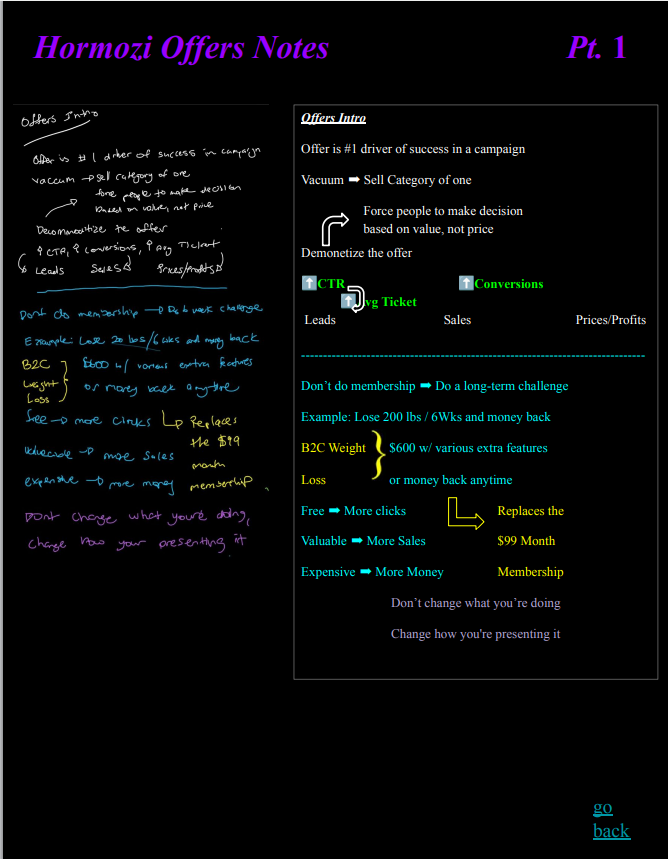 Hormozi Offers Notes
Pt. 1
Offers Intro
Offer is #1 driver of success in campaign
vaccum → sell category of one
force people to make decision
based on value, not price
Decommoditize the offer
↑ CTR, ↑ Conversions, ↑ Avg Ticket
Leads Sales Prices/Profits
Dont do membership → Do 6 week challenge
Example: Lose 20 lbs/6 wks and money back
B2C
Weight
Loss
$600 w/ various extra features
or money back anytime
free → more clicks
Valuable → more sales
expensive → more money
Replaces
the $99
month
membership
Dont change what youre doing,
change how your presenting it
Offers Intro
Offer is #1 driver of success in a campaign
Vacuum ➡ Sell Category of one
Force people to make decision
based on value, not price
Demonetize the offer
⬆CTR ⬆Conversions
⬆vg Ticket
Leads Sales Prices/Profits
Don't do membership ➡ Do a long-term challenge
Example: Lose 200 lbs / 6Wks and money back
B2C Weight $600 w/ various extra features
Loss or money back anytime
Free ➡ More clicks Replaces the
Valuable ➡ More Sales $99 Month
Expensive ➡ More Money Membership
Don't change what you're doing
Change how you're presenting it
go
back